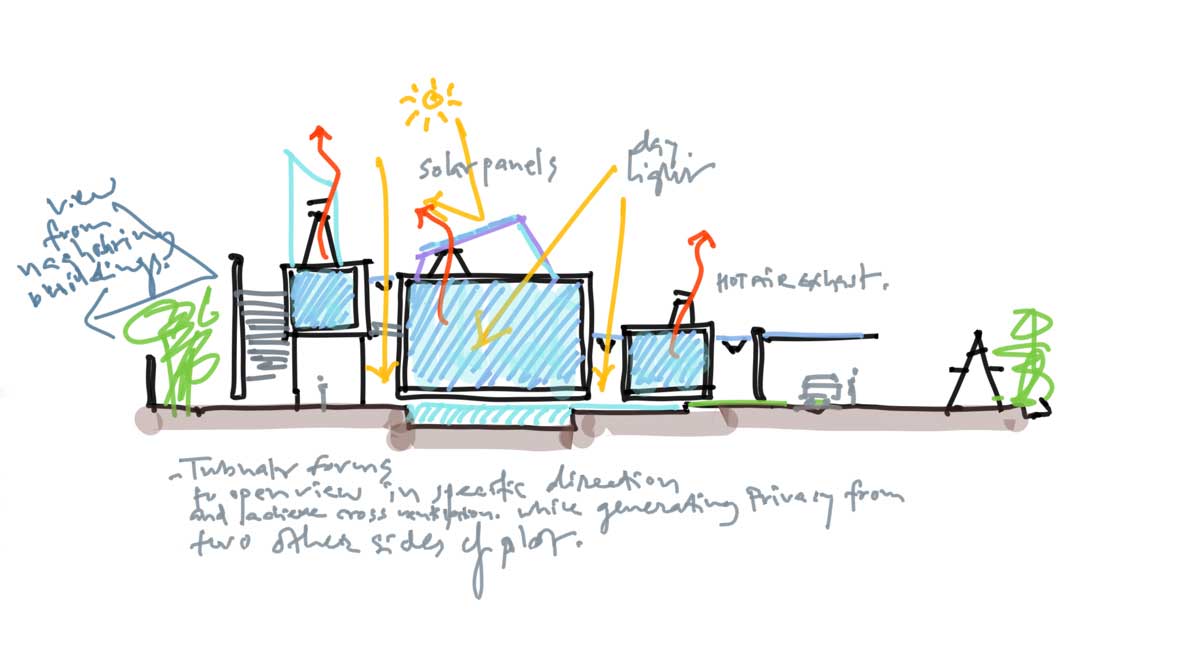 solar panels
day
light
view
from
neighboring
buildings.
Hot air exhaust.
- Tubular forms
to open view in specific direction
and achieve cross ventilation. while generating privacy from
two other sides of plot.